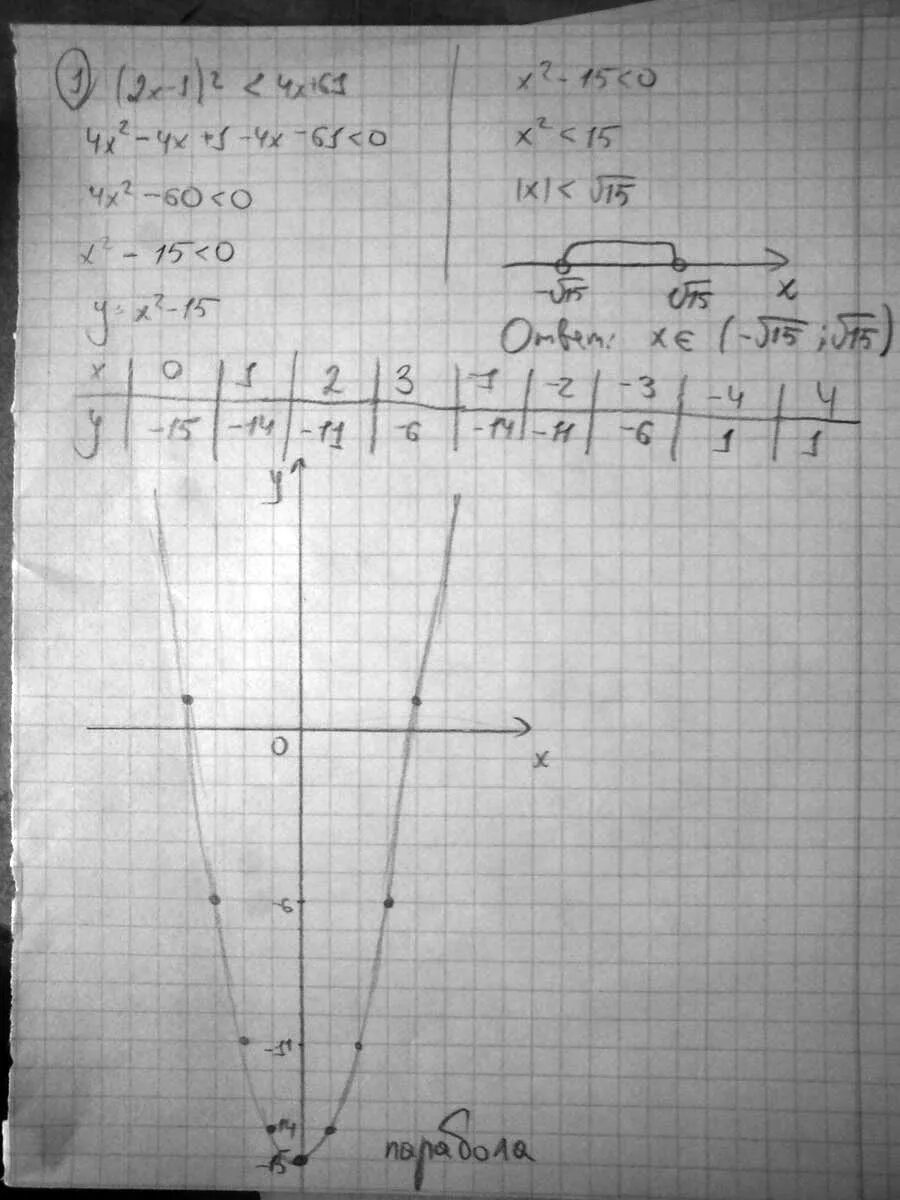 1 (2x-1)² < 4x+61
4x² - 4x + 1 - 4x - 61 < 0
4x² - 60 < 0
x² - 15 < 0
y = x² - 15
x² - 15 < 0
x² < 15
|x| < √15
-√15 √15 x
Ответ: x ∈ (-√15 ; √15)
x 0 1 2 3 -1 -2 -3 -4 4
y -15 -14 -11 -6 -14 -11 -6 1 1
y
0
x
-6
-11
-14
-15
парабола